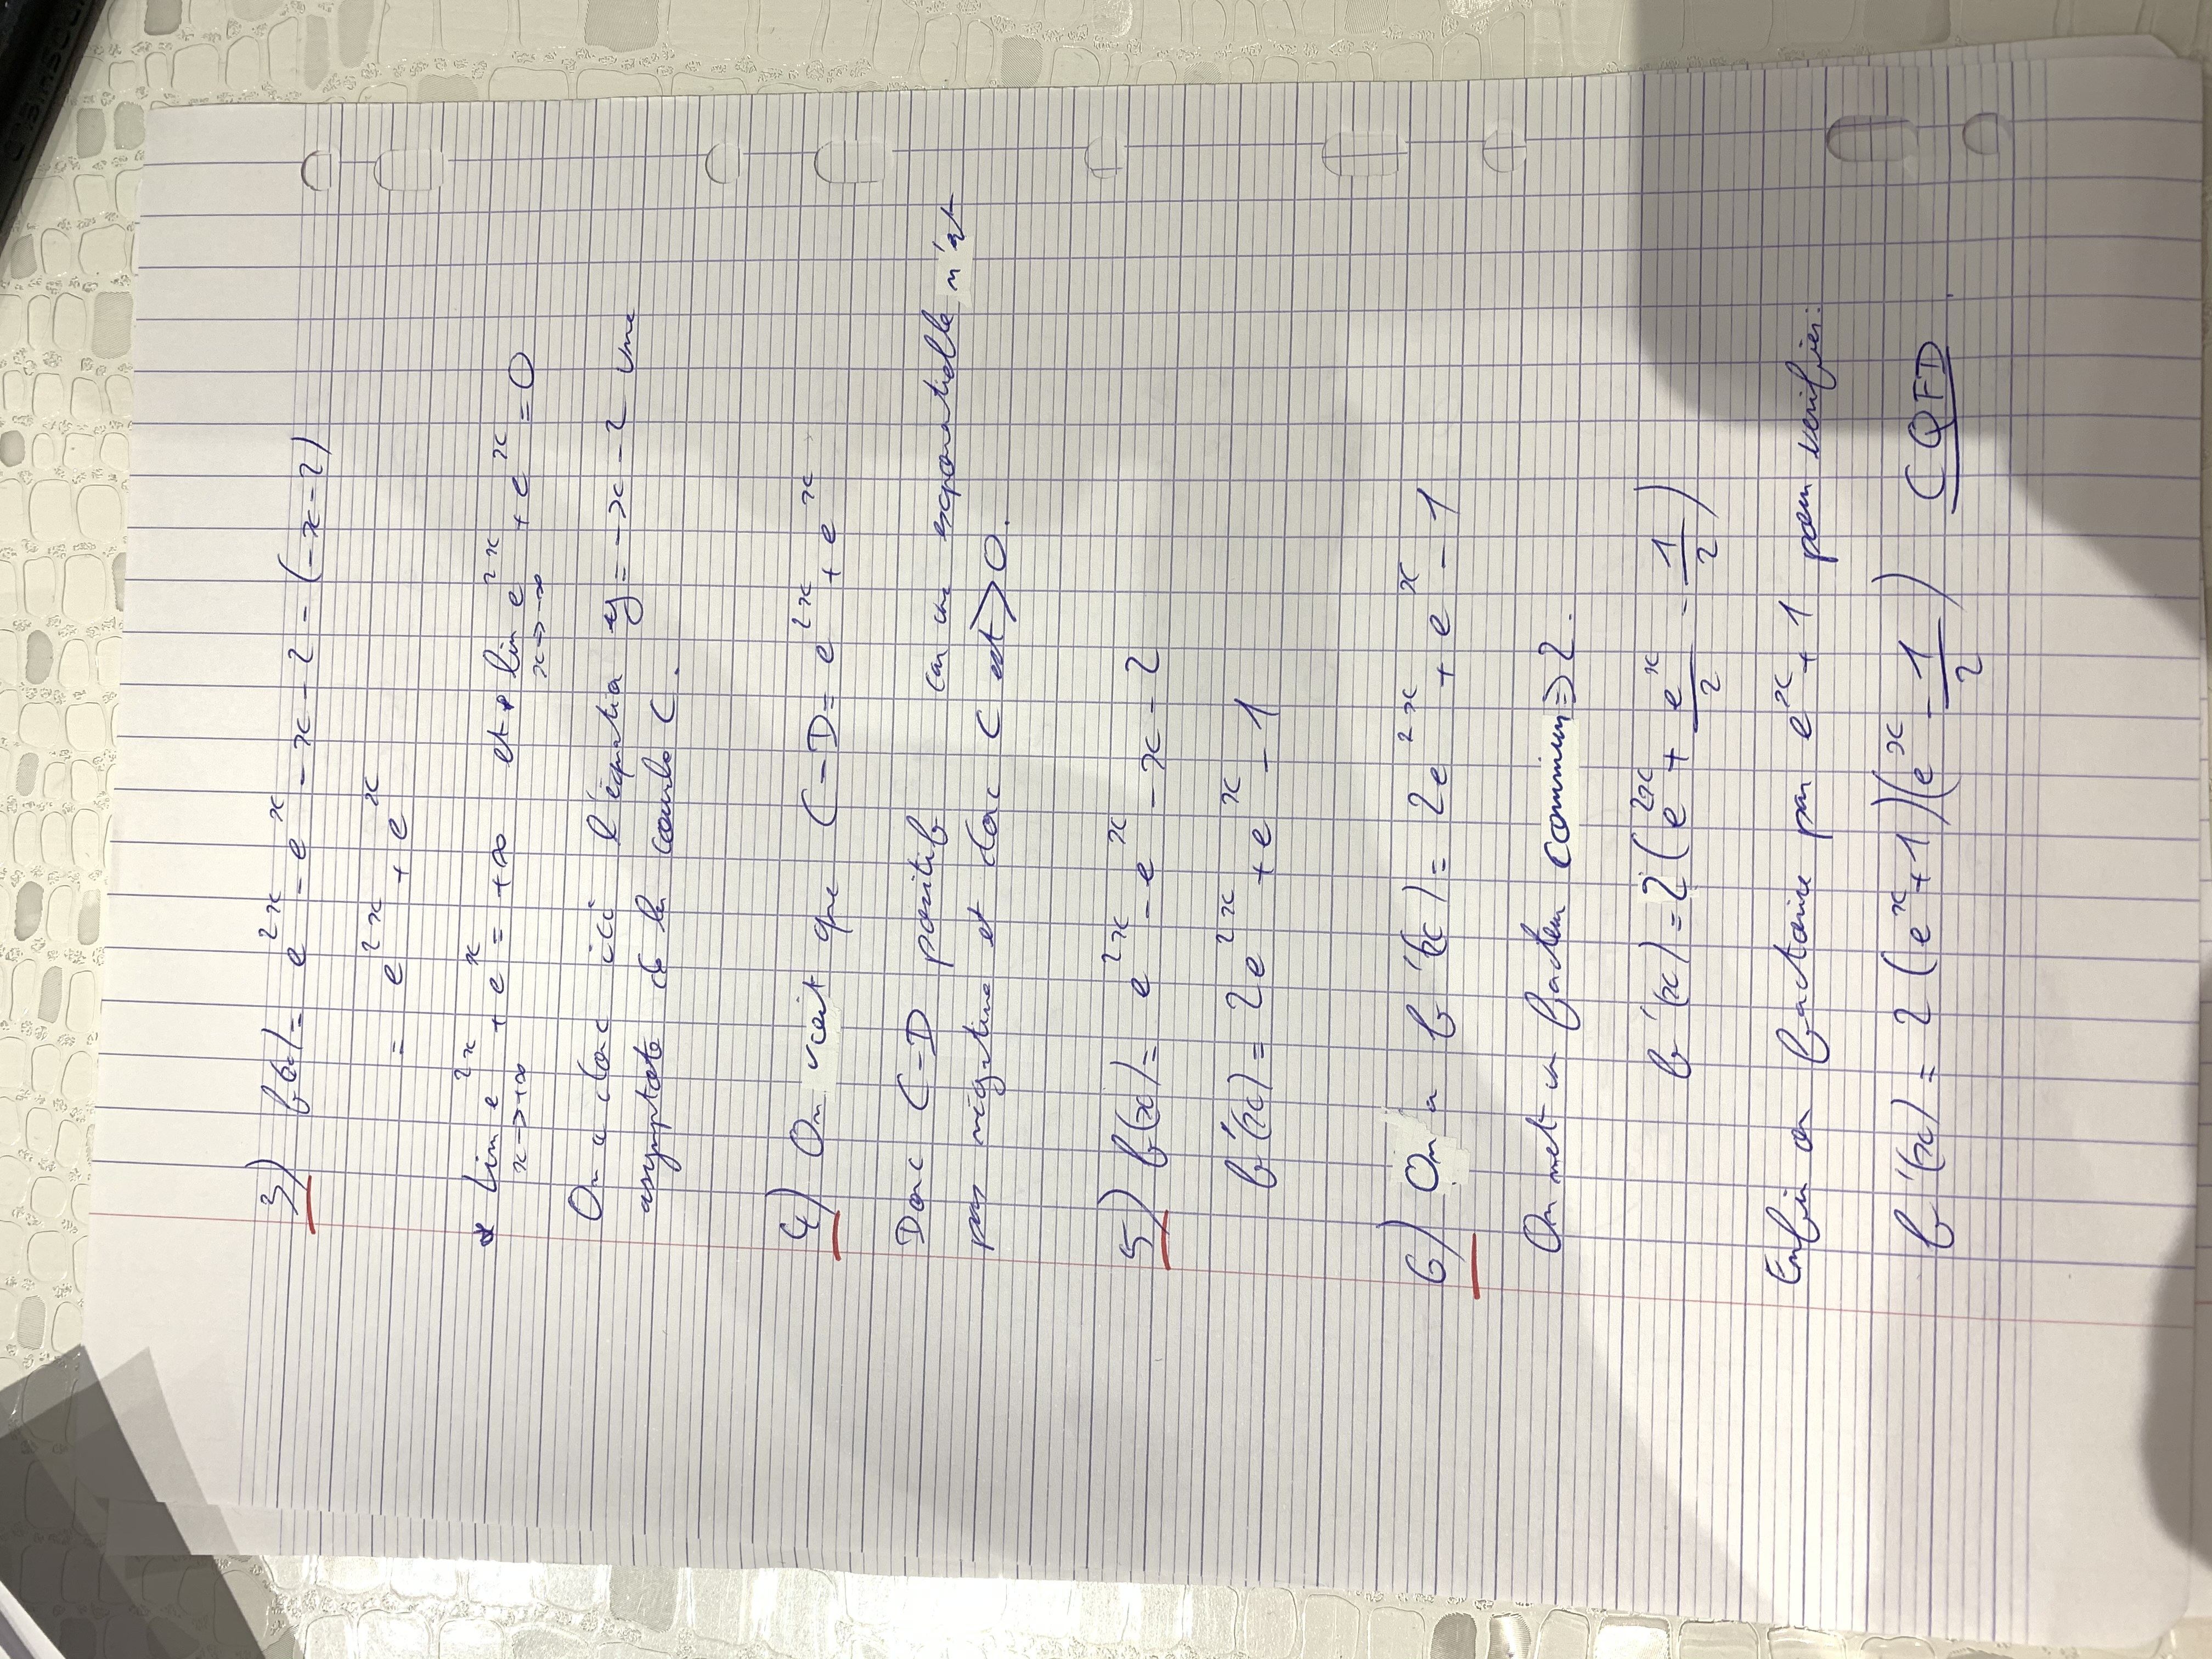 3) f(x) = e^{2x} - e^{x} - x - 2 - (-x-2)
= e^{2x} + e^{x}
* lim_{x→+∞} e^{2x} + e^{x} = +∞ et * lim_{x→-∞} e^{2x} + e^{x} = 0
On a donc ici l'équation y = -x - 2 une
asymptote de la courbe C.
4) On voit que C - D = e^{2x} + e^{x}
Donc C - D positif car une exponentielle n'est
pas négative et donc C est > 0.
5) f(x) = e^{2x} - e^{x} - x - 2
f'(x) = 2e^{2x} + e^{x} - 1
6) On a f'(x) = 2e^{2x} + e^{x} - 1
On met un facteur commun ⇒ 2.
f'(x) = 2(e^{2x} + \frac{e^{x}}{2} - \frac{1}{2})
Enfin on factorise par e^{x} + 1 pour verifier:
f'(x) = 2(e^{x} + 1)(e^{x} - \frac{1}{2}) CQFD